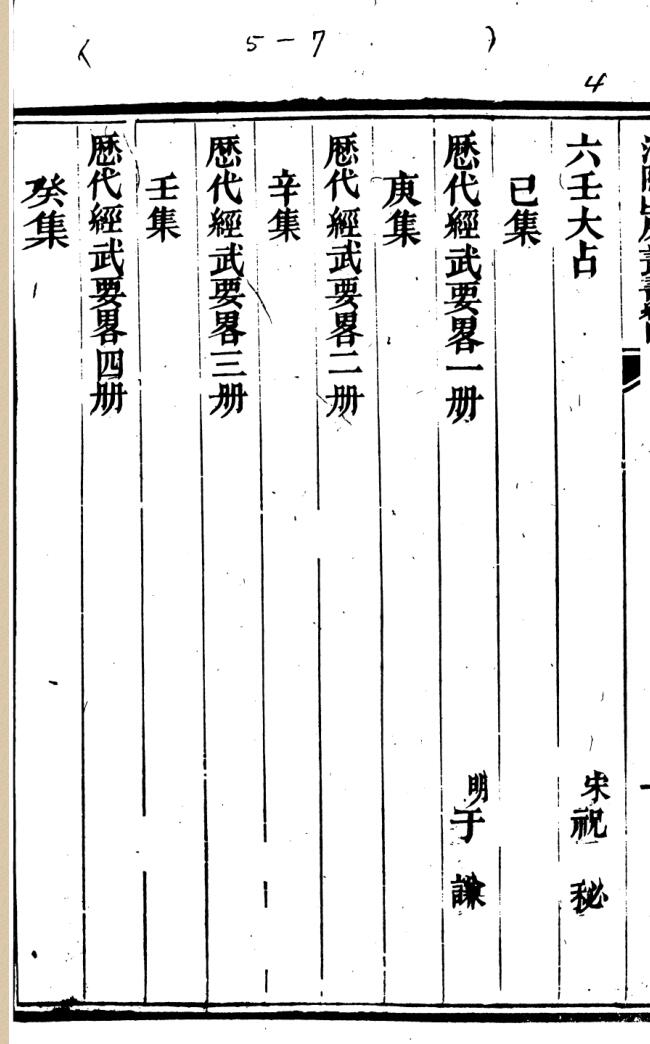 5-7
4
六壬大占 宋祝 秘
已集
歴代經武要畧一册 明于 謙
庚集
歴代經武要畧二册
辛集
歴代經武要畧三册
壬集
歴代經武要畧四册
癸集